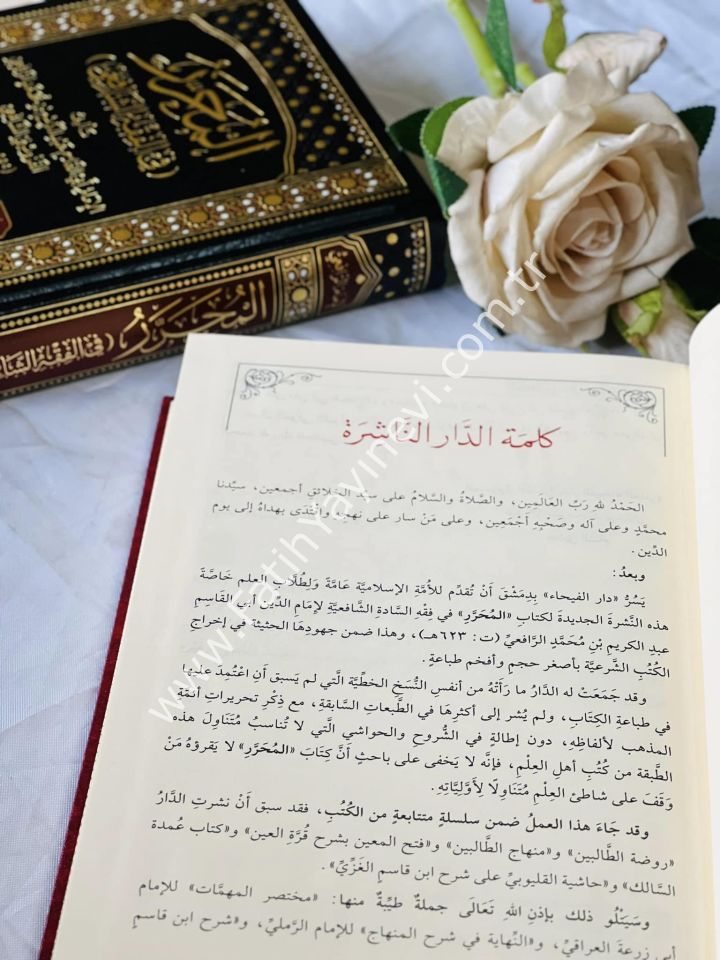 المحرر
(في الفقه الشافعي)
المُحَرَّرُ
(في الفقه الشا
كلمة الدَّار النَّاشرَة
الحَمْدُ للهِ رَبِّ العَالَمِين، والصَّلاةُ والسَّلامُ على سيِّد الخلائقِ أجمعين، سيِّدنا
محمَّدٍ وعلى آله وصَحْبِهِ أَجْمَعِين، وعلى مَنْ سار على نهجِه واهْتَدَى بهداهُ إلى يوم
الدِّين.
وبعدُ:
يَسُرُّ «دار الفيحاء» بِدِمَشْقَ أَنْ تُقدِّم للأُمَّةِ الإسلاميَّةِ عَامَّةً وَلِطُلَّابِ العلم خَاصَّةً
هذه النَّشرةَ الجديدةَ لكتابِ «المُحَرَّرِ» في فِقْهِ السَّادةِ الشَّافعيَّةِ لإمَامِ الدِّين أبي القَاسِمِ
عبدِ الكريم بْنِ مُحَمَّدٍ الرَّافعيِّ (ت: ٦٢٣هـ)، وهذا ضمن جهودِهَا الحثيثة في إخراجِ
الكُتُبِ الشَّرعيَّةِ بأصغر حجمٍ وأفخم طباعةٍ.
وقد جَمَعَتْ له الدَّارُ ما رَأَتْهُ من أنفسِ النُّسَخِ الخطِّيَّة الَّتي لم يَسبق أَنِ اعْتُمِدَ عليها
في طباعةِ الكِتَابِ، ولم يُشر إلى أكثرِهَا في الطَّبعاتِ السَّابقةِ، مع ذِكْرِ تحريراتِ أئمَّةِ
المذهب لألفاظِهِ، دون إطالةٍ في الشُّروح والحواشي الَّتي لا تُناسبُ مُتَنَاوِلَ هذه
الطَّبقة من كُتُبِ أهلِ العِلْمِ، فإنَّه لا يَخفى على باحثٍ أنَّ كِتَابَ «المُحَرَّرِ» لا يَقرؤهُ مَنْ
وَقَفَ على شاطئِ العِلْمِ مُتَنَاوِلًا لِأَوَّلِيَّاتِهِ.
وقد جَاءَ هذا العملُ ضمن سلسلةٍ متتابعةٍ من الكُتُبِ، فقد سبق أَنْ نشرتِ الدَّارُ
«روضة الطَّالبين» و«منهاج الطَّالبين» و«فتح المعين بشرح قُرَّةِ العين» و«كتاب عُمدة
السَّالك» و«حاشية القليوبيِّ على شرح ابن قاسمٍ الغَزِّيِّ».
وسَيَتْلُو ذلك بإذنِ اللهِ تَعَالَى جملةٌ طيِّبةٌ منها: «مختصر المهمَّات» للإمام
أبي زرعةَ العراقيِّ، و«النِّهاية في شرح المنهاج» للإمام الرَّمليِّ، و«شرح ابن قاسمٍ
www.FatihYayinevi.com.tr